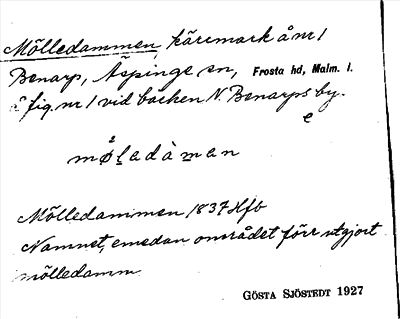 Mölledammen, kärrmark å nr 1
Benarp, Äspinge sn, Frosta hd, Malm. l.
å fig. nr 1 vid bäcken N. Benarps by.
e
2
møladàman
Mölledammen 1837 Hfb
Namnet, emedan området förr utgjort
mölledamm
GÖSTA SJÖSTEDT 1927